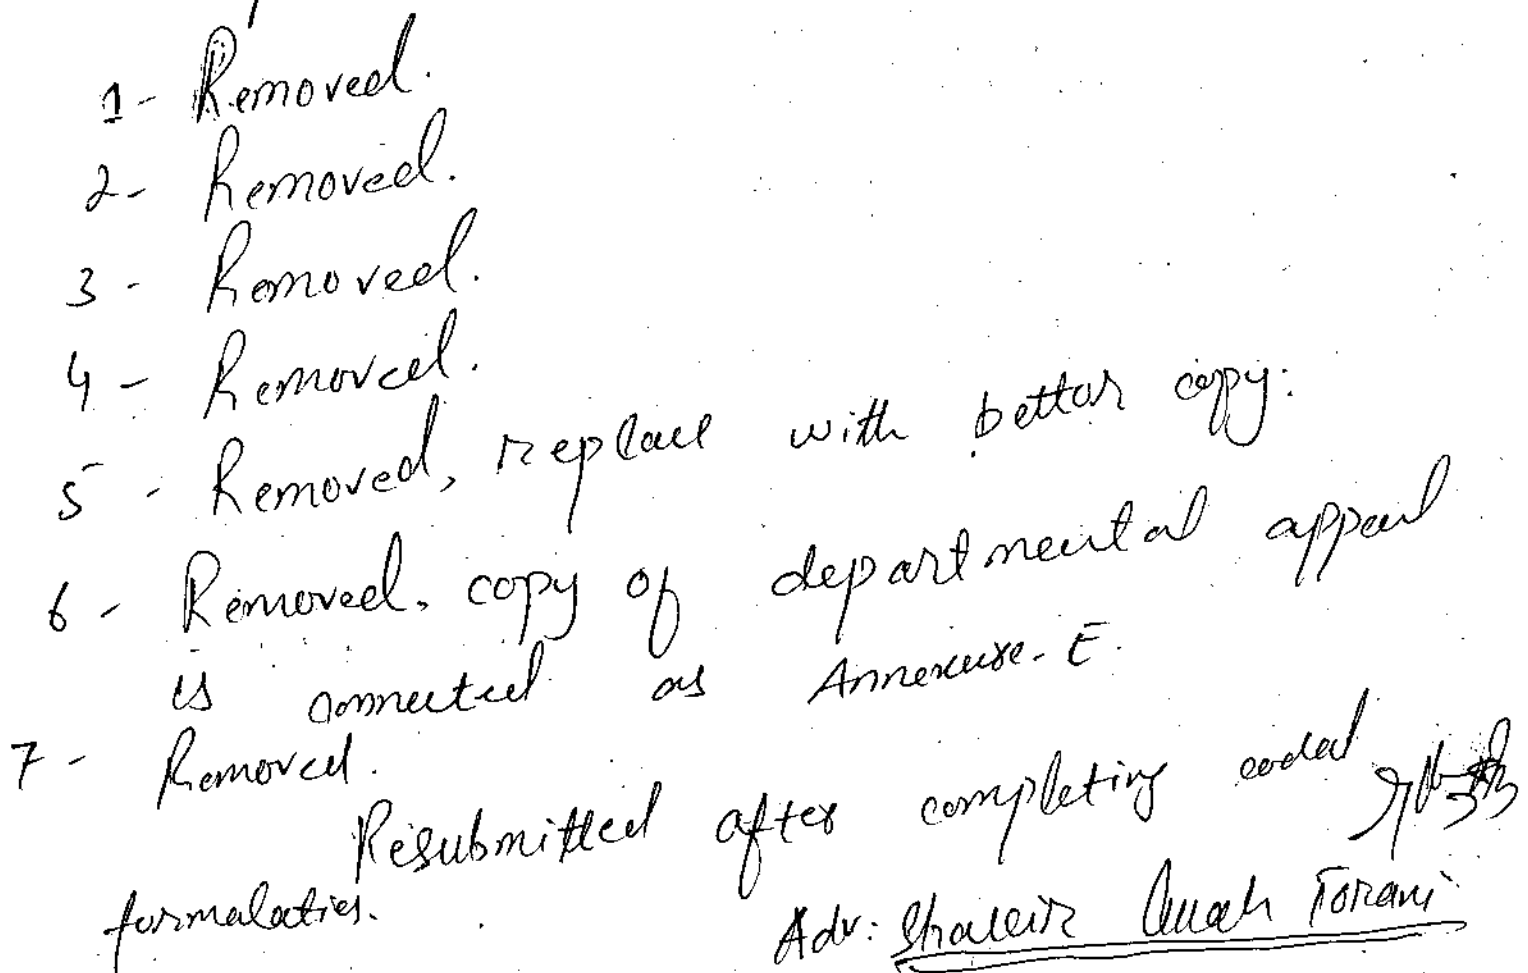 1- Removed.
2- Removed.
3- Removed.
4- Removed.
5- Removed, replace with better copy.
6- Removed. copy of departmental appeal
is connected as Annexure-E.
7- Removed.
Resubmitted after completing codal
formalaties.
Adv: Torani